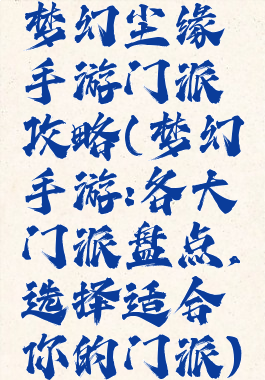 梦幻尘缘
手游门派
攻略(梦幻
手游:各大
门派盘点,
选择适合
你的门派)